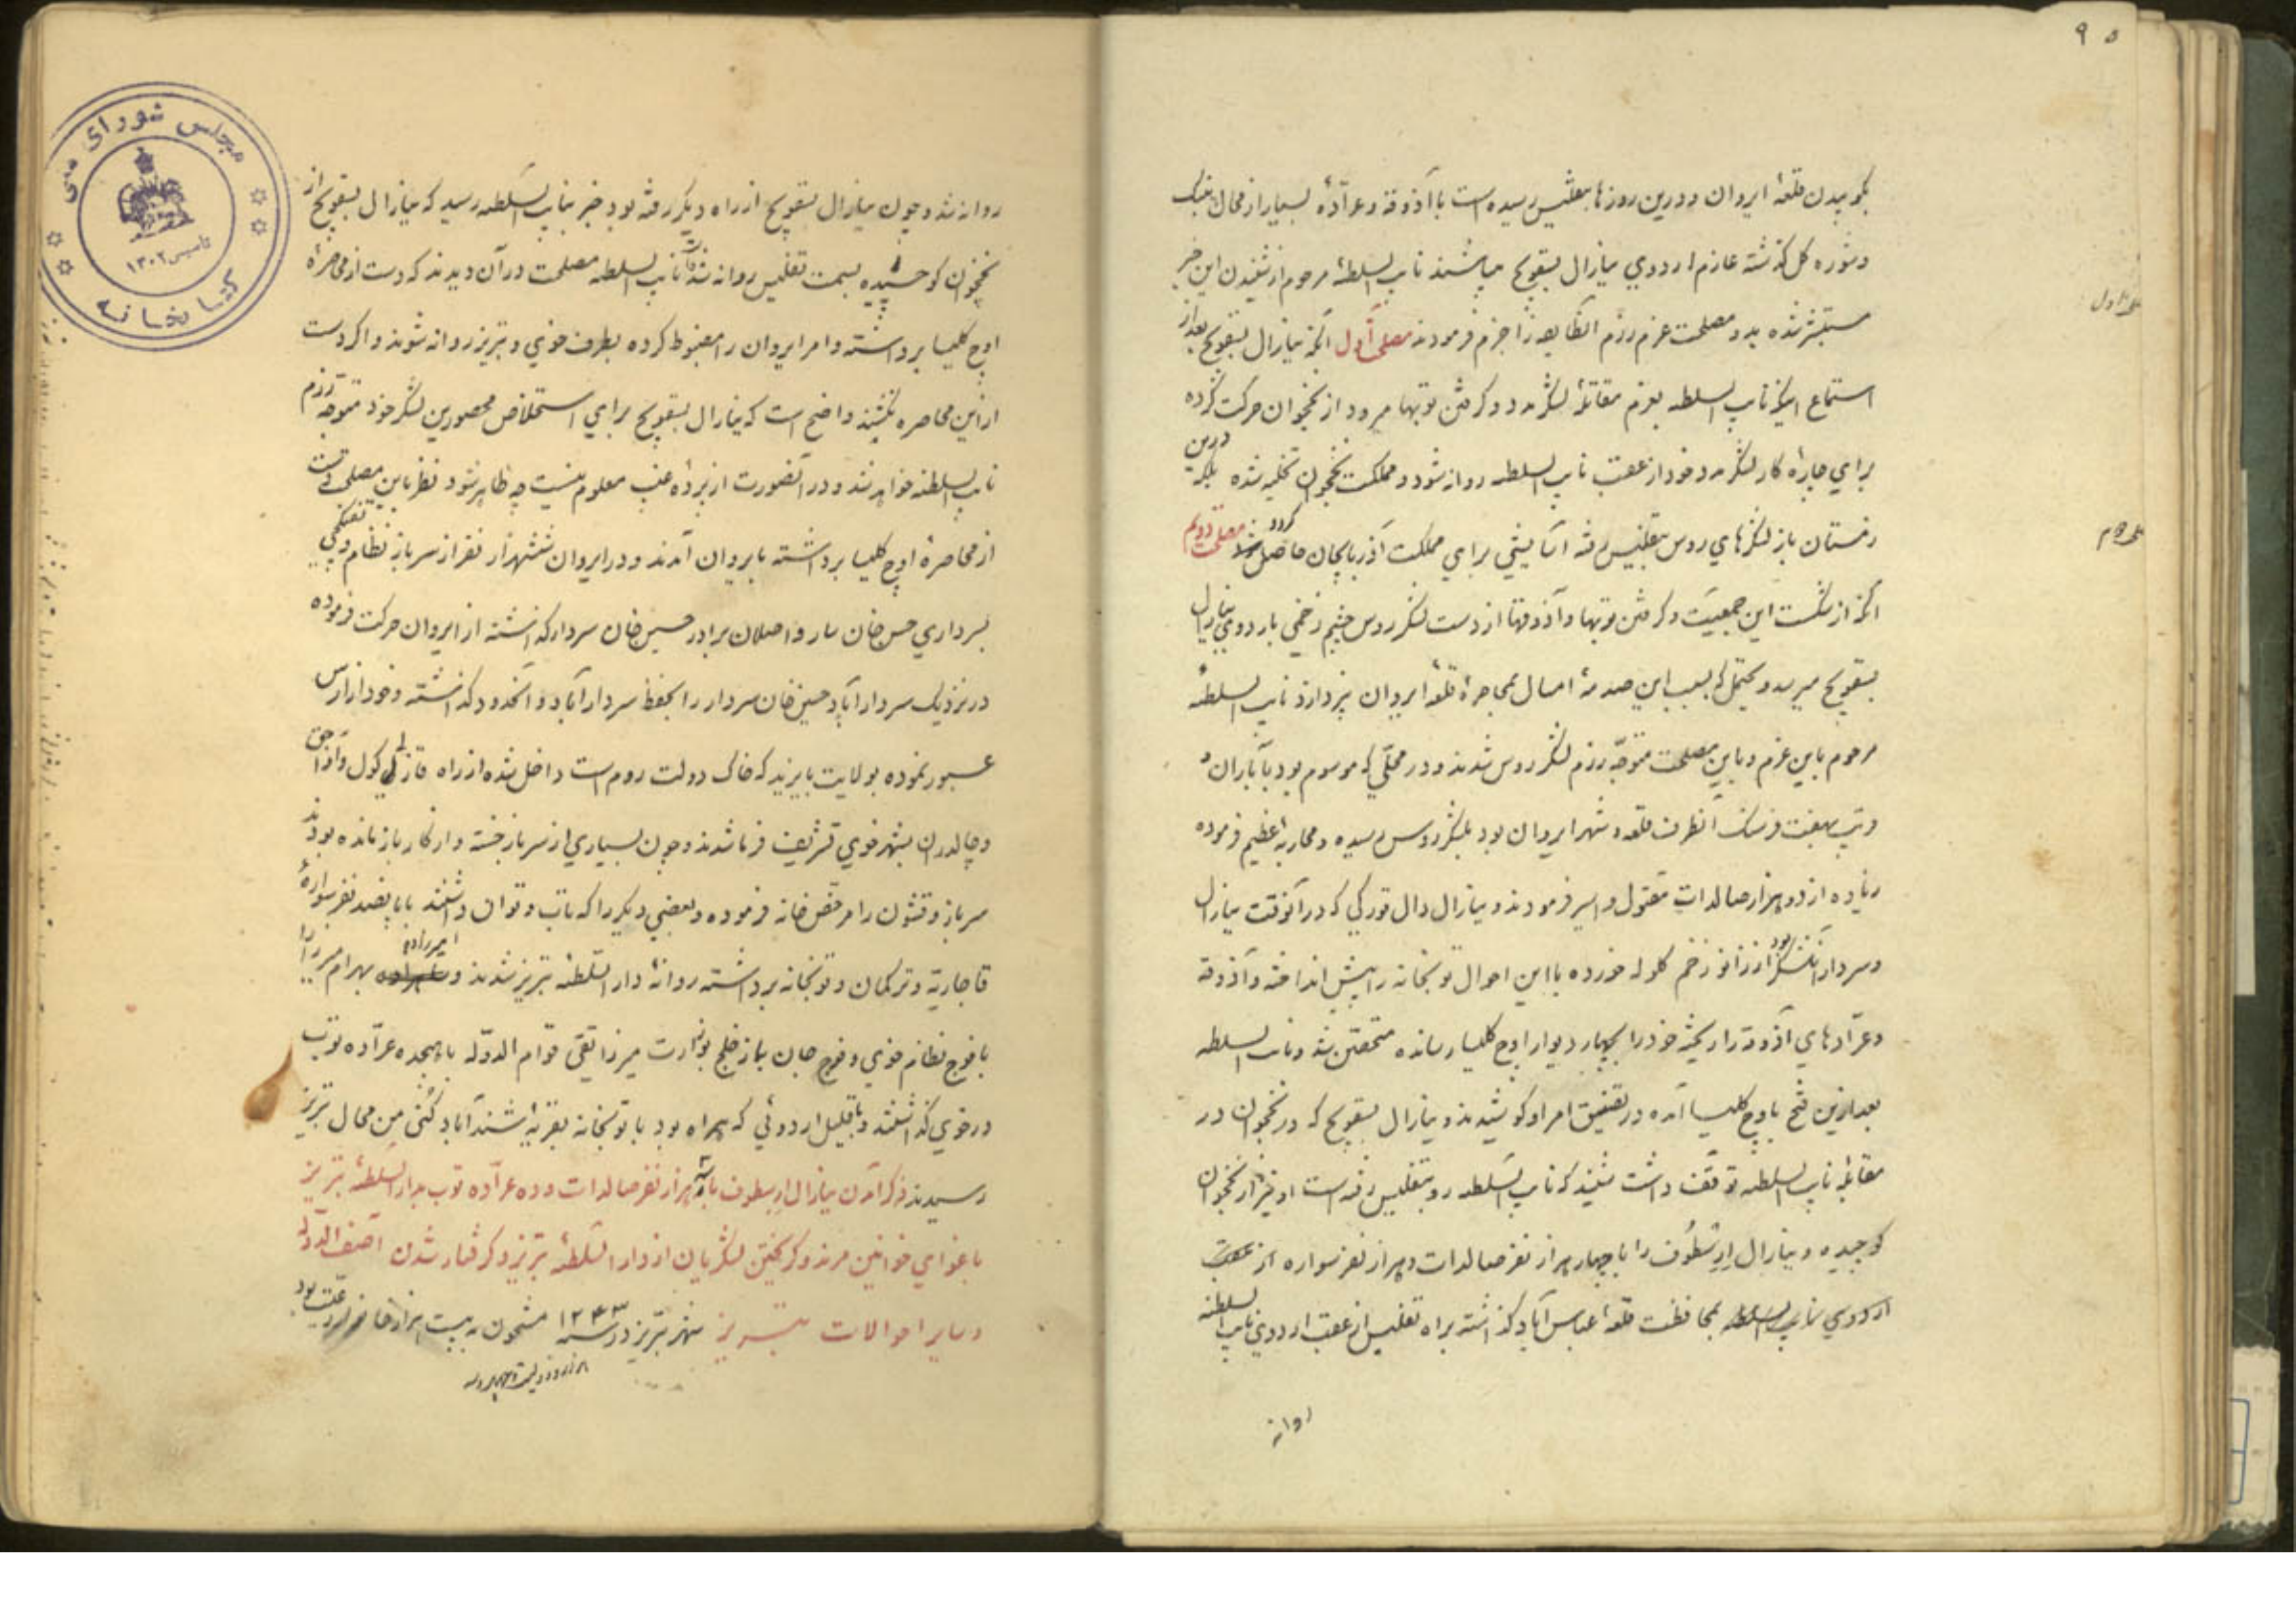 ۹۵
بکوبیدن قلعهٔ ایروان و درین روزها بتفلیس رسیده است با آذوقه و عرّادهٔ بسیار از محال
و شوره کل گذشته عازم اردوی ینارال بسقویچ میباشند نایب السلطهٔ مرحوم از شنیدن این خبر
مستبشر شده بدو مصلحت عزم رزم انطایفه را جزم فرمودند مصلحت اول آنکه ینارال بسقویچ بعد از
استماع اینکه نایب السلطه بعزم مقاتلهٔ لشکر مدد و گرفتن توپها میرود از نخجوان حرکت کرده
برای چارهٔ کار لشکر مدد خود از عقب نایب السلطه روانه شود و مملکت نخجوان تخلیه شده بلکه درین
زمستان باز لشکرهای روس بتفلیس رفته آسایشی برای مملکت آذربایجان حاصل گردد مصلحت دویم
آنکه از شکست این جمعیّت و گرفتن توپها و آذوقها از دست لشکر روس چشم زخمی باردوی ینارال
بسقویچ میرسد و یحتمل که بسبب این صدمهٔ امسال بمحاصرهٔ قلعهٔ ایروان نپردازد نایب السلطهٔ
مرحوم باین عزم و باین مصلحت متوجّه رزم لشکر روس شدند و در محلّی که موسوم بود بآباران و
قریب بهفت فرسنک آنطرف قلعه و شهر ایروان بود بلشکر روس رسیده و محاربهٔ عظیم فرموده
زیاده از دو هزار صالدات مقتول و اسیر فرمودند و ینارال دال قورکی که در آنوقت ینارال
و سردار آن لشکر بود از زانو زخم گلوله خورده با این احوال توپخانه را پیش انداخته و آذوقه
و عرّادهای آذوقه را ریخته خود را بچهار دیوار اوچ کلیسا رسانده متحصّن شد و نایب السلطه
بعد ازین فتح باوچ کلیسا آمده در تضییق امر او کوشیدند و ینارال بسقویچ که در نخجوان در
مقابلهٔ نایب السلطه توقّف داشت شنید که نایب السّلطه رو بتفلیس رفته است او نیز از نخجوان
کوچیده و ینارال ارسطُوف را با چهار هزار نفر صالدات و هزار نفر سواره از عقب
اردوی نایب السلطه بمحافظت قلعهٔ عباس آباد گذاشته براه تفلیس از عقب اردوی نایب السلطنه
روانه
روانه شد و چون ینارال بسقویچ از راه دیگر رفته بود خبر بنایب السّلطه رسید که ینارال بسقویچ از
نخجوان کوچیده بسمت تفلیس روانه شد نایب السلطه مصلحت در آن دیدند که دست از محاصرهٔ
اوچ کلیسا برداشته و امر ایروان را مضبوط کرده بطرف خوی و تبریز روانه شوند و اگر دست
از این محاصره نکشند واضح است که ینارال بسقویچ برای استخلاص محصورین لشکر خود متوجّه رزم
نایب السلطنه خواهد شد و در آنصورت از پردهٔ غیب معلوم نیست چه ظاهر شود نظر باین مصلحت دست
از محاصرهٔ اوچ کلیسا برداشته بایروان آمدند و در ایروان ششهزار نفر از سرباز نظام و تفنکچی
بسرداری حسن خان ساروا صلان برادر حسین خان سردار گذاشته از ایروان حرکت فرموده
در نزدیک سردار آباد حسین خان سردار را بحفظ سردار آباد و آنحدود گذاشته و خود از ارس
عبور نموده بولایت بایزید که خاک دولت روم است داخل شده از راه قازلی کول و آواجق
و چالدران بشهر خوی تشریف فرما شدند و چون بسیاری از سرباز خسته و از کار باز مانده بودند
سرباز و قشون را مرخّص خانه فرموده و بعضی دیگر را که تاب و توان داشتند با پانصد نفر سوارهٔ
قاجاریّه و ترکمان و توپخانه برداشته روانهٔ دار السّلطهٔ تبریز شدند و امیرزاده بهرام میرزا را
با فوج نظام خوی و فوج جان باز خلج بوزارت میرزا تقی قوام الدوّله با هیجده عرّاده توپ
در خوی گذاشتند و با قلیل اردوئی که همراه بود با توپخانه بقریهٔ اشتد آباد کنی من محال تبریز
رسیدند ذکر آمدن ینارال ارسطوف با سه هزار نفر صالدات و ده عرّاده توپ بدار السّلطهٔ تبریز
باغوای خوانین مرند و گریختن لشکریان از دار السّلطهٔ تبریز و گرفتار شدن آصف الدّوله
و سایر احوالات تبریز شهر تبریز در سنه ۱۲۴۳ مشحون به بیست هزار خانه رعیّت بود
مجلس شورای ملی
کتابخانه
تاسیس ۱۳۰۲